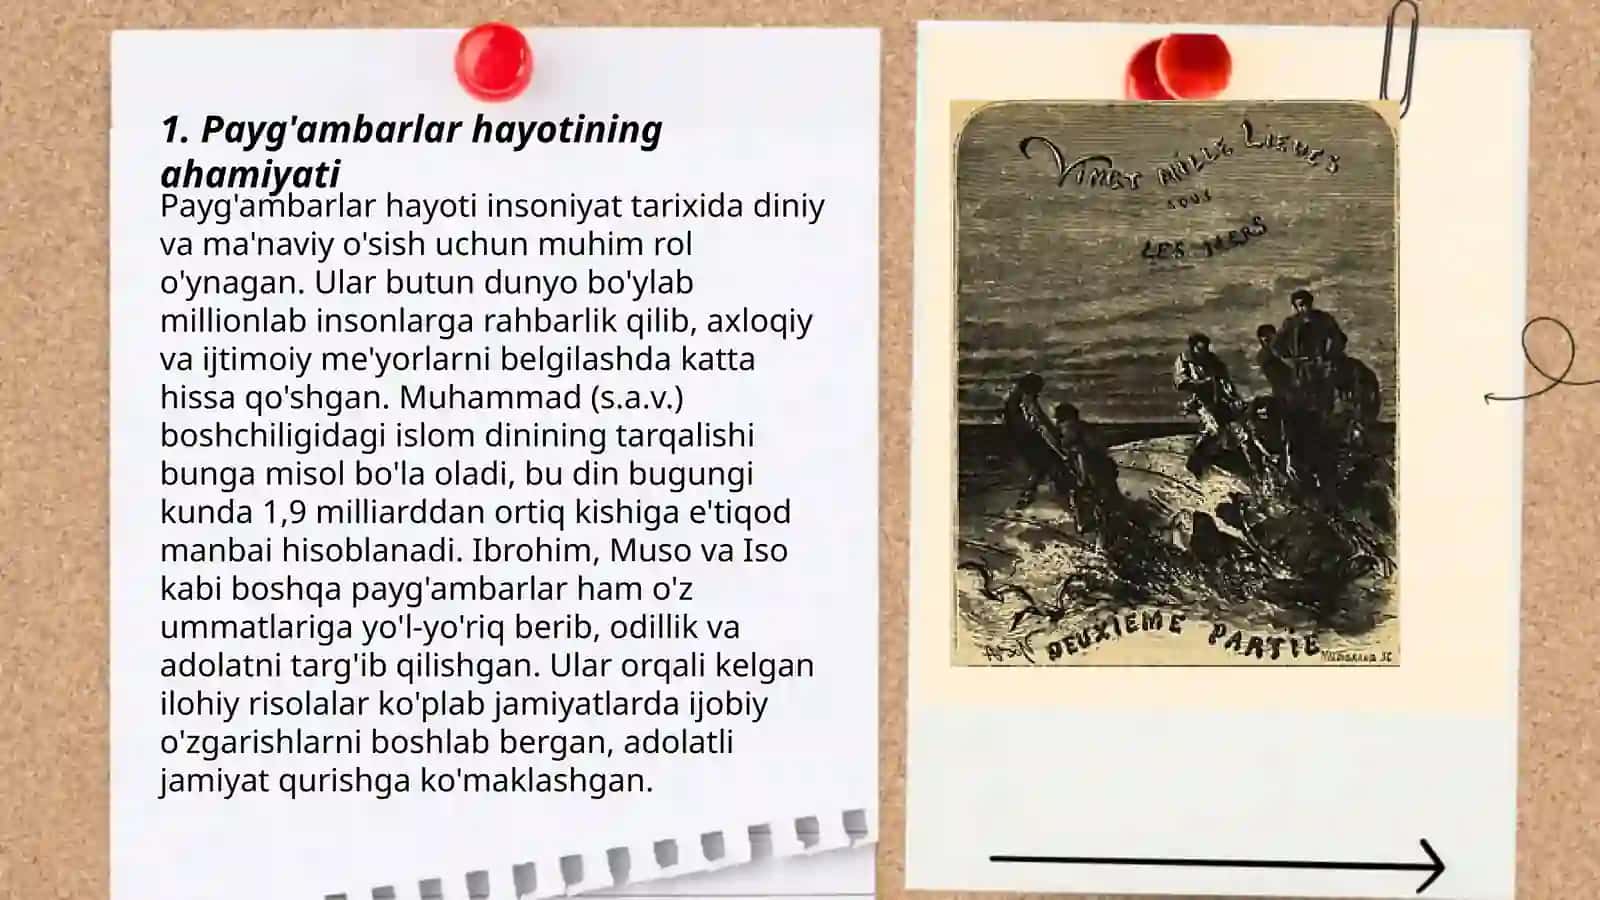 1. Payg'ambarlar hayotining
ahamiyati
Payg'ambarlar hayoti insoniyat tarixida diniy
va ma'naviy o'sish uchun muhim rol
o'ynagan. Ular butun dunyo bo'ylab
millionlab insonlarga rahbarlik qilib, axloqiy
va ijtimoiy me'yorlarni belgilashda katta
hissa qo'shgan. Muhammad (s.a.v.)
boshchiligidagi islom dinining tarqalishi
bunga misol bo'la oladi, bu din bugungi
kunda 1,9 milliarddan ortiq kishiga e'tiqod
manbai hisoblanadi. Ibrohim, Muso va Iso
kabi boshqa payg'ambarlar ham o'z
ummatlariga yo'l-yo'riq berib, odillik va
adolatni targ'ib qilishgan. Ular orqali kelgan
ilohiy risolalar ko'plab jamiyatlarda ijobiy
o'zgarishlarni boshlab bergan, adolatli
jamiyat qurishga ko'maklashgan.
VINGT MILLE LIEUES
SOUS
LES MERS
DEUXIEME PARTIE